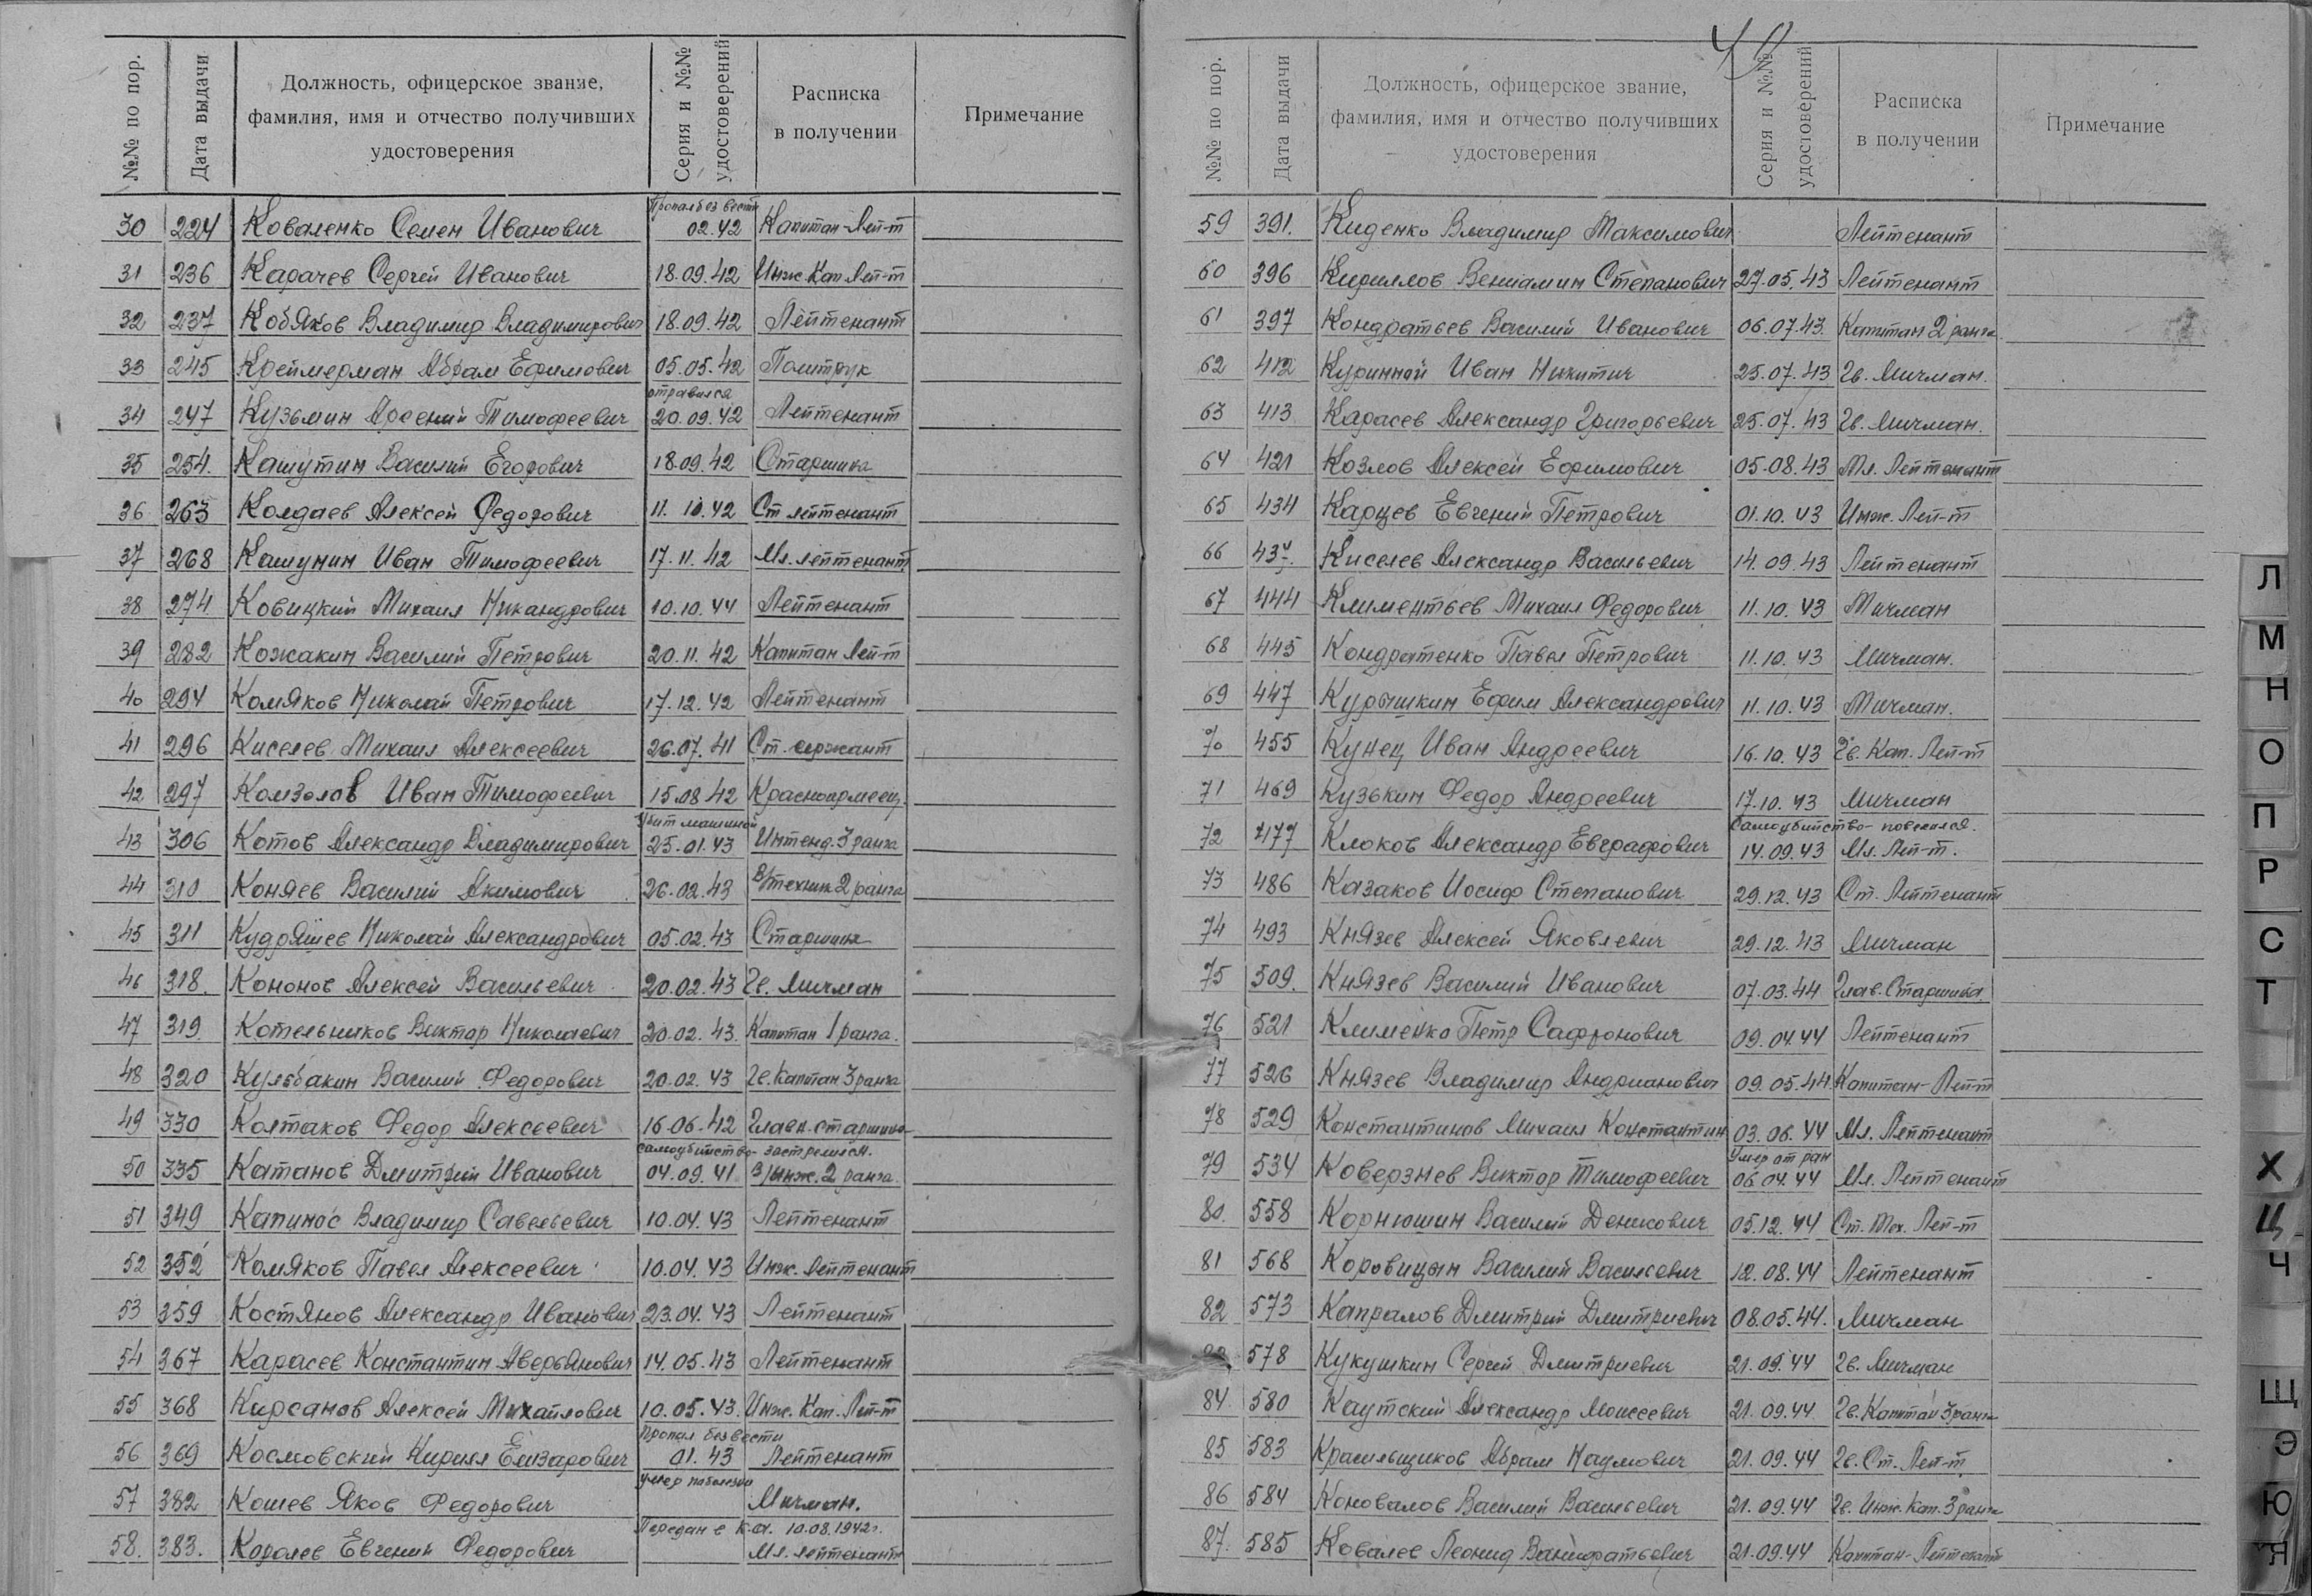 №№ по пор. Дата выдачи Должность, офицерское звание, фамилия, имя и отчество получивших удостоверения Серия и №№ удостоверений Расписка в получении Примечание
Пропал без вести
30 224 Коваленко Семен Иванович 02.42 Капитан-Лей-т
31 236 Карачев Сергей Иванович 18.09.42 Инж. Кап. Лей-т
32 237 Кобяков Владимир Владимирович 18.09.42 Лейтенант
33 245 Креймерман Абрам Ефимович 05.05.42 Политрук
отравился
34 247 Кузьмин Арсений Тимофеевич 20.09.42 Лейтенант
35 254. Кашутин Василий Егорович 18.09.42 Старшина
36 263 Колдаев Алексей Федорович 11.10.42 Ст лейтенант
37 268 Кашунин Иван Тимофеевич 17.11.42 Мл. лейтенант
38 274 Ковицкий Михаил Никандрович 10.10.44 Лейтенант
39 282 Кожакин Василий Петрович 20.11.42 Капитан Лей-т
40 294 Комяков Николай Петрович 17.12.42 Лейтенант
41 296 Киселев Михаил Алексеевич 26.07.41 Ст. сержант
42 297 Комзолов Иван Тимофеевич 15.08.42 Красноармеец
Убит машиной
43 306 Котов Александр Владимирович 25.01.43 Интенд. 3 ранга
44 310 Коняев Василий Акимович 26.02.43 В/техник 2 ранга
45 311 Кудряшев Николай Александрович 05.02.43 Старшина
46 318. Кононов Алексей Васильевич 20.02.43 Гв. Мичман
47 319 Котельников Виктор Николаевич 20.02.43. Капитан 1 ранга.
48 320 Кульбакин Василий Федорович 20.02.43 Гв. Капитан 3 ранга
49 330 Колтаков Федор Алексеевич 16.06.42 Главн. старшина
самоубийство - застрелился.
50 335 Катанов Дмитрий Иванович 04.09.41 В/инж. 2 ранга.
51 349 Капинос Владимир Савельевич 10.04.43 Лейтенант
52 352 Комяков Павел Алексеевич 10.04.43 Инж. Лейтенант
53 359 Костянов Александр Иванович 23.04.43 Лейтенант
54 367 Карасев Константин Аверьянович 14.05.43 Лейтенант
55 368 Кирсанов Алексей Михайлович 10.05.43. Инж. Кап. Лей-т
Пропал без вести
56 369 Космовский Кирилл Елизарович 01.43 Лейтенант
умер по болезни
57 382 Кошев Яков Федорович Мичман.
Передан в К.А. 10.08.1942 г.
58. 383. Королев Евгений Федорович Мл. лейтенант
№№ по пор. Дата выдачи Должность, офицерское звание, фамилия, имя и отчество получивших удостоверения Серия и №№ удостоверений Расписка в получении Примечание
59 391. Киденко Владимир Максимович Лейтенант
60 396 Кириллов Вениамин Степанович 27.05.43 Лейтенант
61 397 Кондратьев Василий Иванович 06.07.43. Капитан 2 ранга
62 412 Куринной Иван Никитич 25.07.43 Гв. Мичман.
63 413 Карасев Александр Григорьевич 25.07.43 Гв. Мичман.
64 421 Козлов Алексей Ефимович 05.08.43 Мл. Лейтенант
65 434 Карцев Евгений Петрович 01.10.43 Инж. Лей-т
66 437. Киселев Александр Васильевич 14.09.43 Лейтенант
67 444 Климентьев Михаил Федорович 11.10.43 Мичман
68 445 Кондратенко Павел Петрович 11.10.43 Мичман.
69 447 Курышкин Ефим Александрович 11.10.43 Мичман.
70 455 Кунец Иван Андреевич 16.10.43 Гв. Кап. Лей-т
71 469 Кузькин Федор Андреевич 17.10.43 Мичман
Самоубийство - повесился.
72 477 Клоков Александр Евграфович 14.09.43 Мл. Лей-т.
73 486 Казаков Иосиф Степанович 29.12.43 Ст. Лейтенант
74 493 Князев Алексей Яковлевич 29.12.43 Мичман
75 509. Князев Василий Иванович 07.03.44 Глав. Старшина
76 521 Клименко Петр Сафронович 09.04.44 Лейтенант
77 526 Князев Владимир Андрианович 09.05.44 Капитан-Лей-т
78 529 Константинов Михаил Константин 03.06.44 Мл. Лейтенант
Умер от ран
79 534 Коверзнев Виктор Тимофеевич 06.04.44 Мл. Лейтенант
80. 558 Корнюшин Василий Денисович 05.12.44 Ст. Тех. Лей-т
81 568 Коровицын Василий Васильевич 12.08.44 Лейтенант
82 573 Капралов Дмитрий Дмитриевич 08.05.44. Мичман
578 Кукушкин Сергей Дмитриевич 21.09.44 Гв. Мичман
84 580 Каутский Александр Моисеевич 21.09.44 Гв. Капитан 3 ранга
85 583 Красильщиков Абрам Наумович 21.09.44 Гв. Ст. Лей-т
86 584 Коновалов Василий Васильевич 21.09.44 Гв. Инж. Кап. 3 ранга
87. 585 Ковалев Леонид 21.09.44 Капитан-Лейтенант
Л
М
Н
О
П
Р
С
Т
Х
Ц
Ч
Щ
Э
Ю
Я